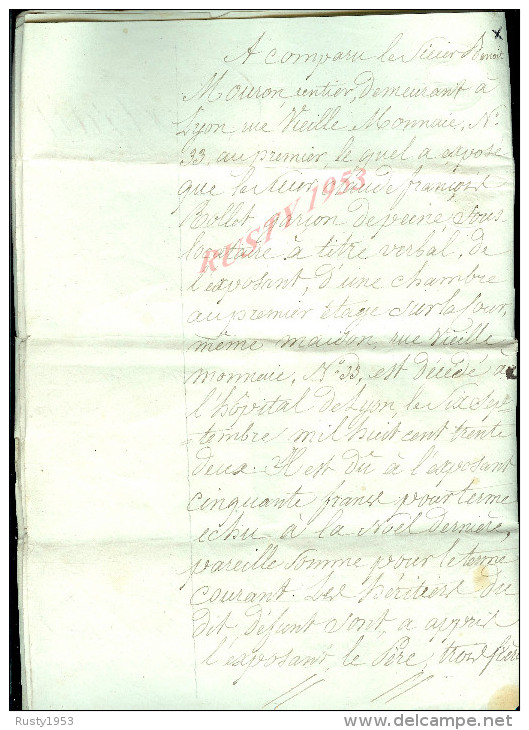 A comparu le Sieur Benoit
Mouron rentier, demeurant à
Lyon rue Vieille Monnaie, N.°
33, au premier, le quel a exposé
que le sieur Claude françois
Rollet garçon de peine, sous
locataire à titre verbal, de
l'exposant, d'une chambre
au premier étage sur la Cour,
même maison, rue Vieille
monnaie, N.° 33, est décédé à
l'hôpital de Lyon, le six Sep
=tembre mil huit cent trente
deux. Il est dû à l'exposant
cinquante francs pour terme
echu à la Noël dernière,
pareille somme pour le terme
courant. Les héritiers du
dit défunt sont, a appris
l'exposant, le Père, trois frères
RUSTY 1953
Rusty1953
www.delcampe.net